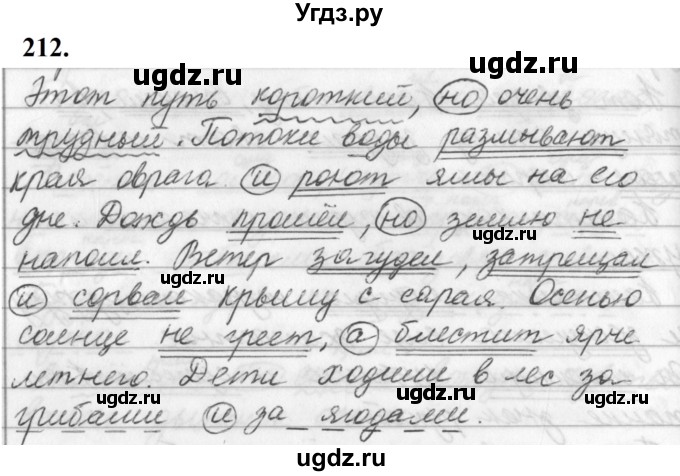 Угдз.ру
212.
Этот путь короткий, но очень
трудный. Потоки воды размывают
края оврага и роют ямы на его
дне. Дождь прошёл, но землю не
напоил. Ветер загудел, затрещал
и сорвал крышу с сарая. Осенью
солнце не греет, а блестит ярче
летнего. Дети ходили в лес за
грибами и за ягодами.
ugdz.ru
ugdz.ru
ugdz.ru
ugdz.ru
ugdz.ru
ugdz.ru
ugdz.ru
ugdz.ru
ugdz.ru